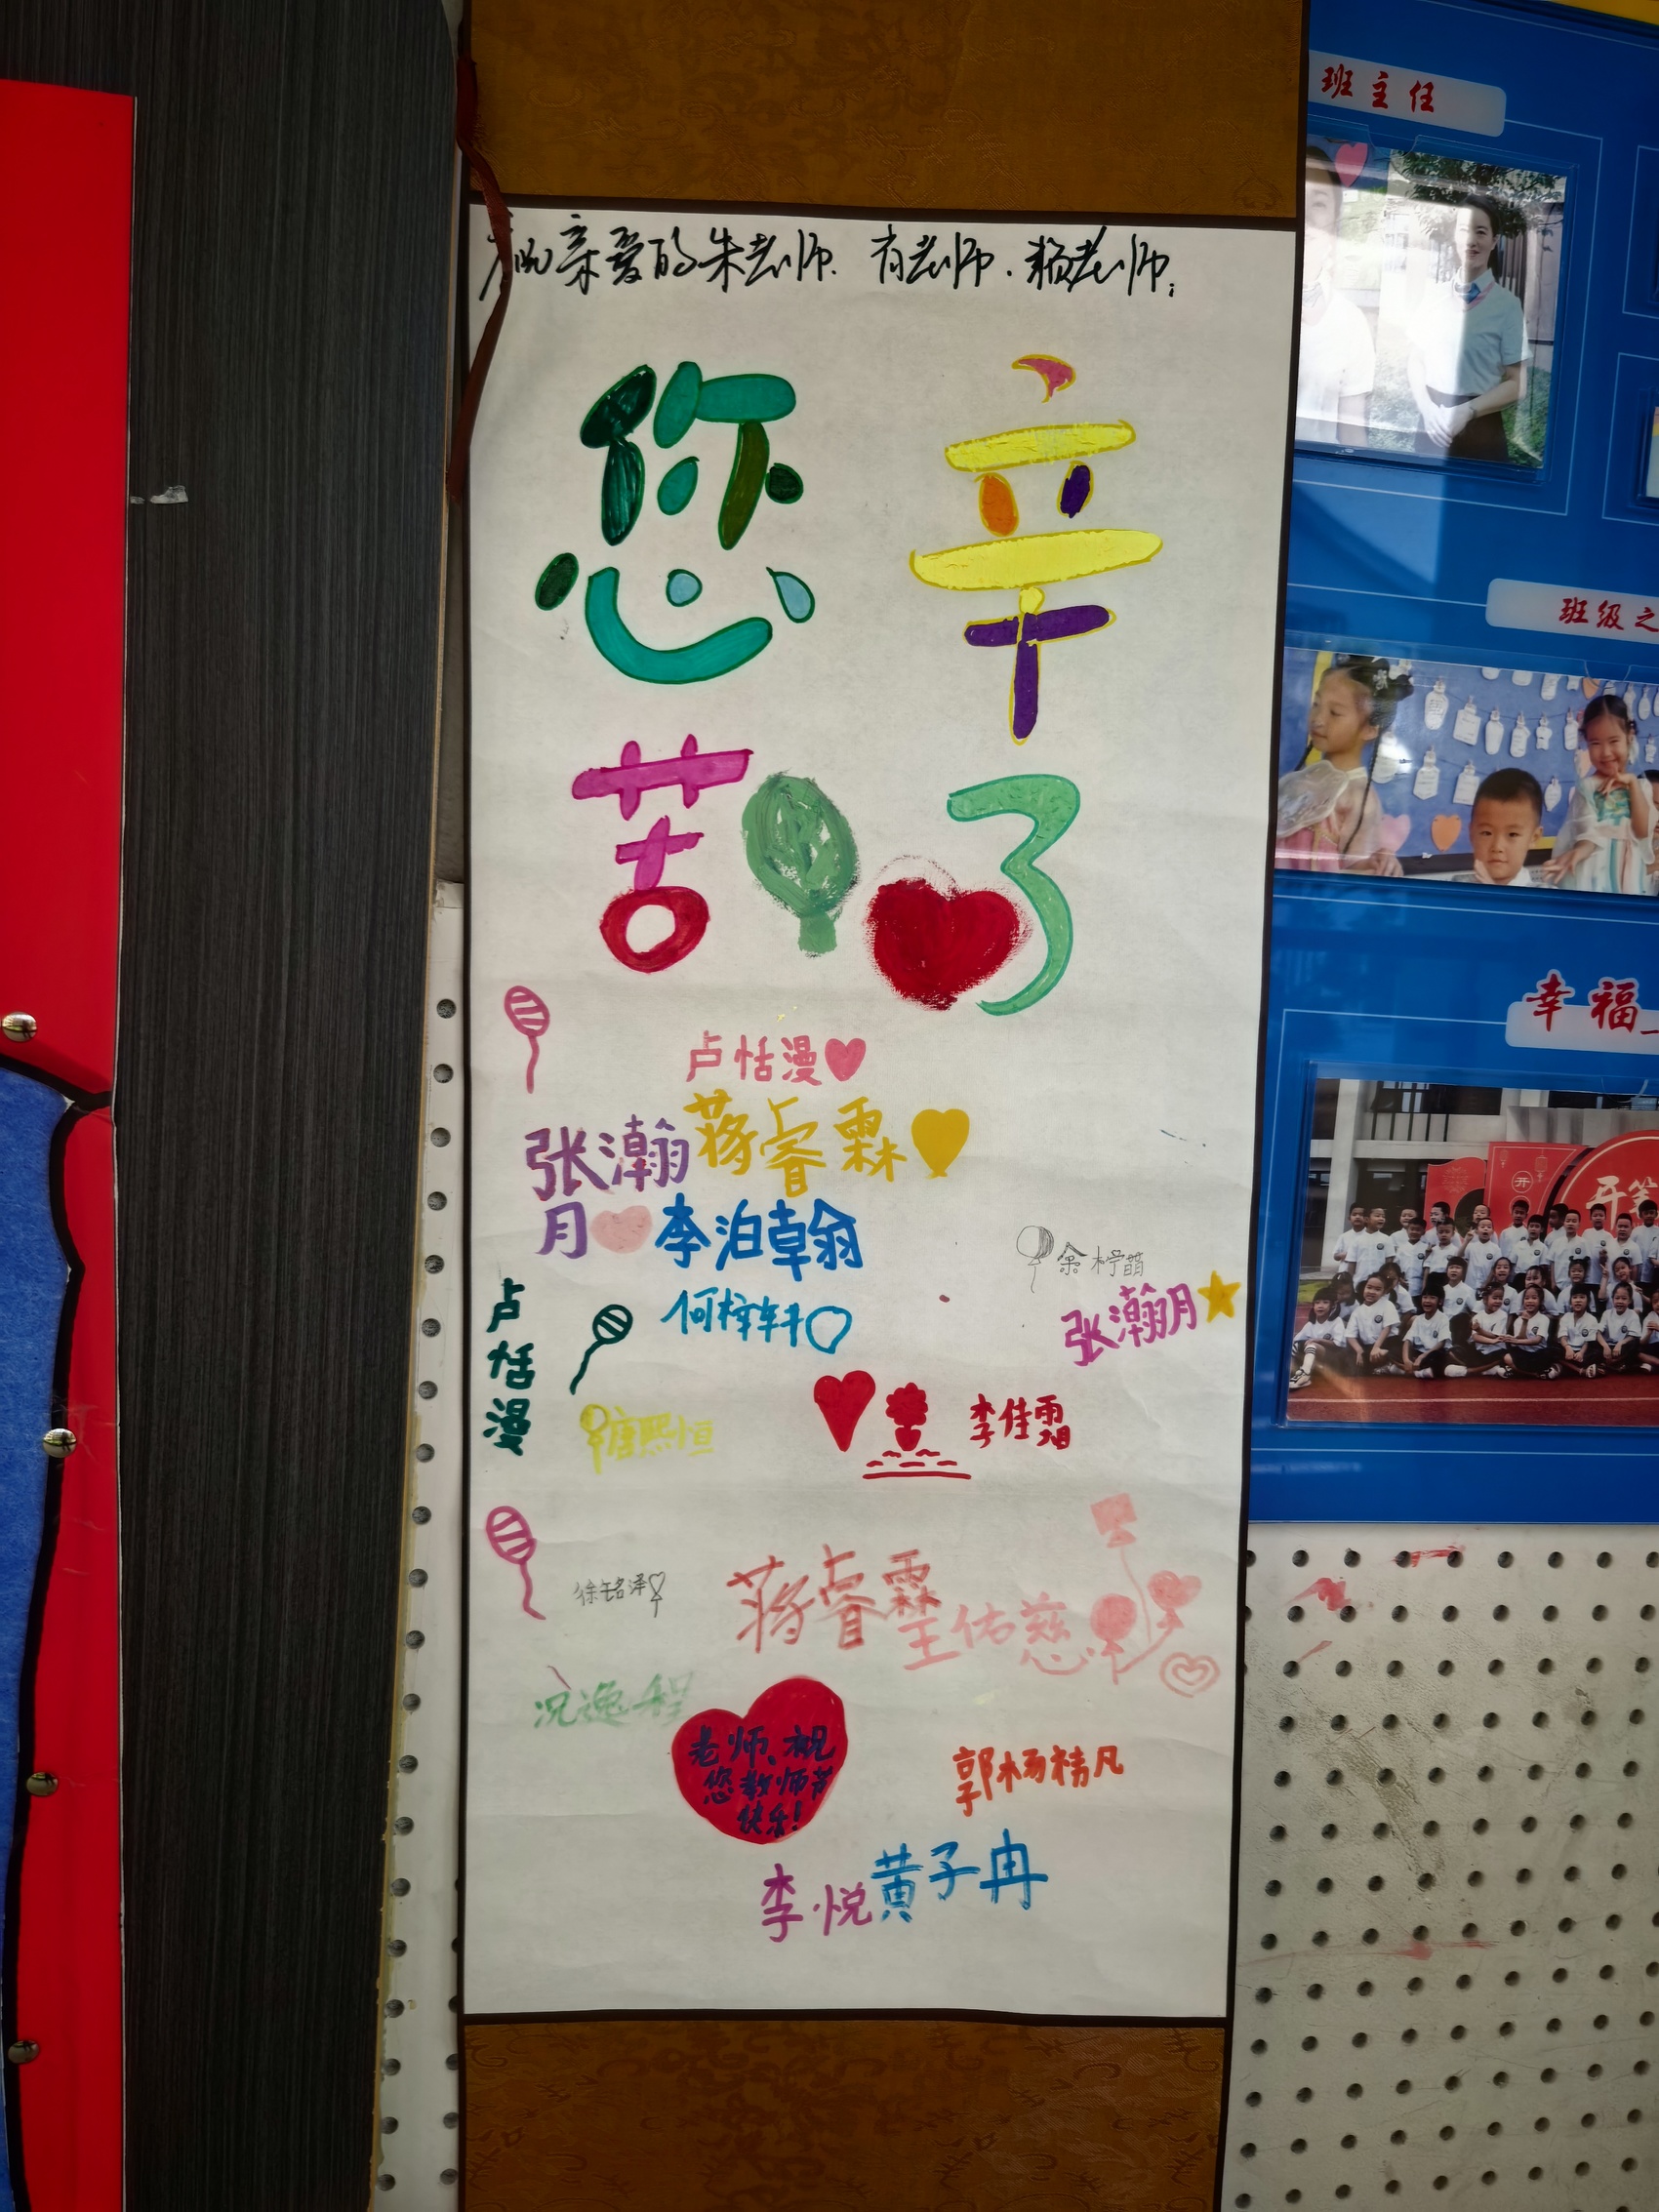 亲爱的朱老师、肖老师、赖老师:
您辛
苦了
卢恬漫
蒋睿霖
张瀚
月
李泊翰
余柠萌
何梓轩
张瀚月
卢恬漫
唐熙恒
李佳霜
徐铭泽
蒋睿霖
王佑慈
沉逸程
老师、祝
您教师节
快乐!
郭杨精凡
李悦
黄子冉
班主任
班级之
幸福
开
开笔